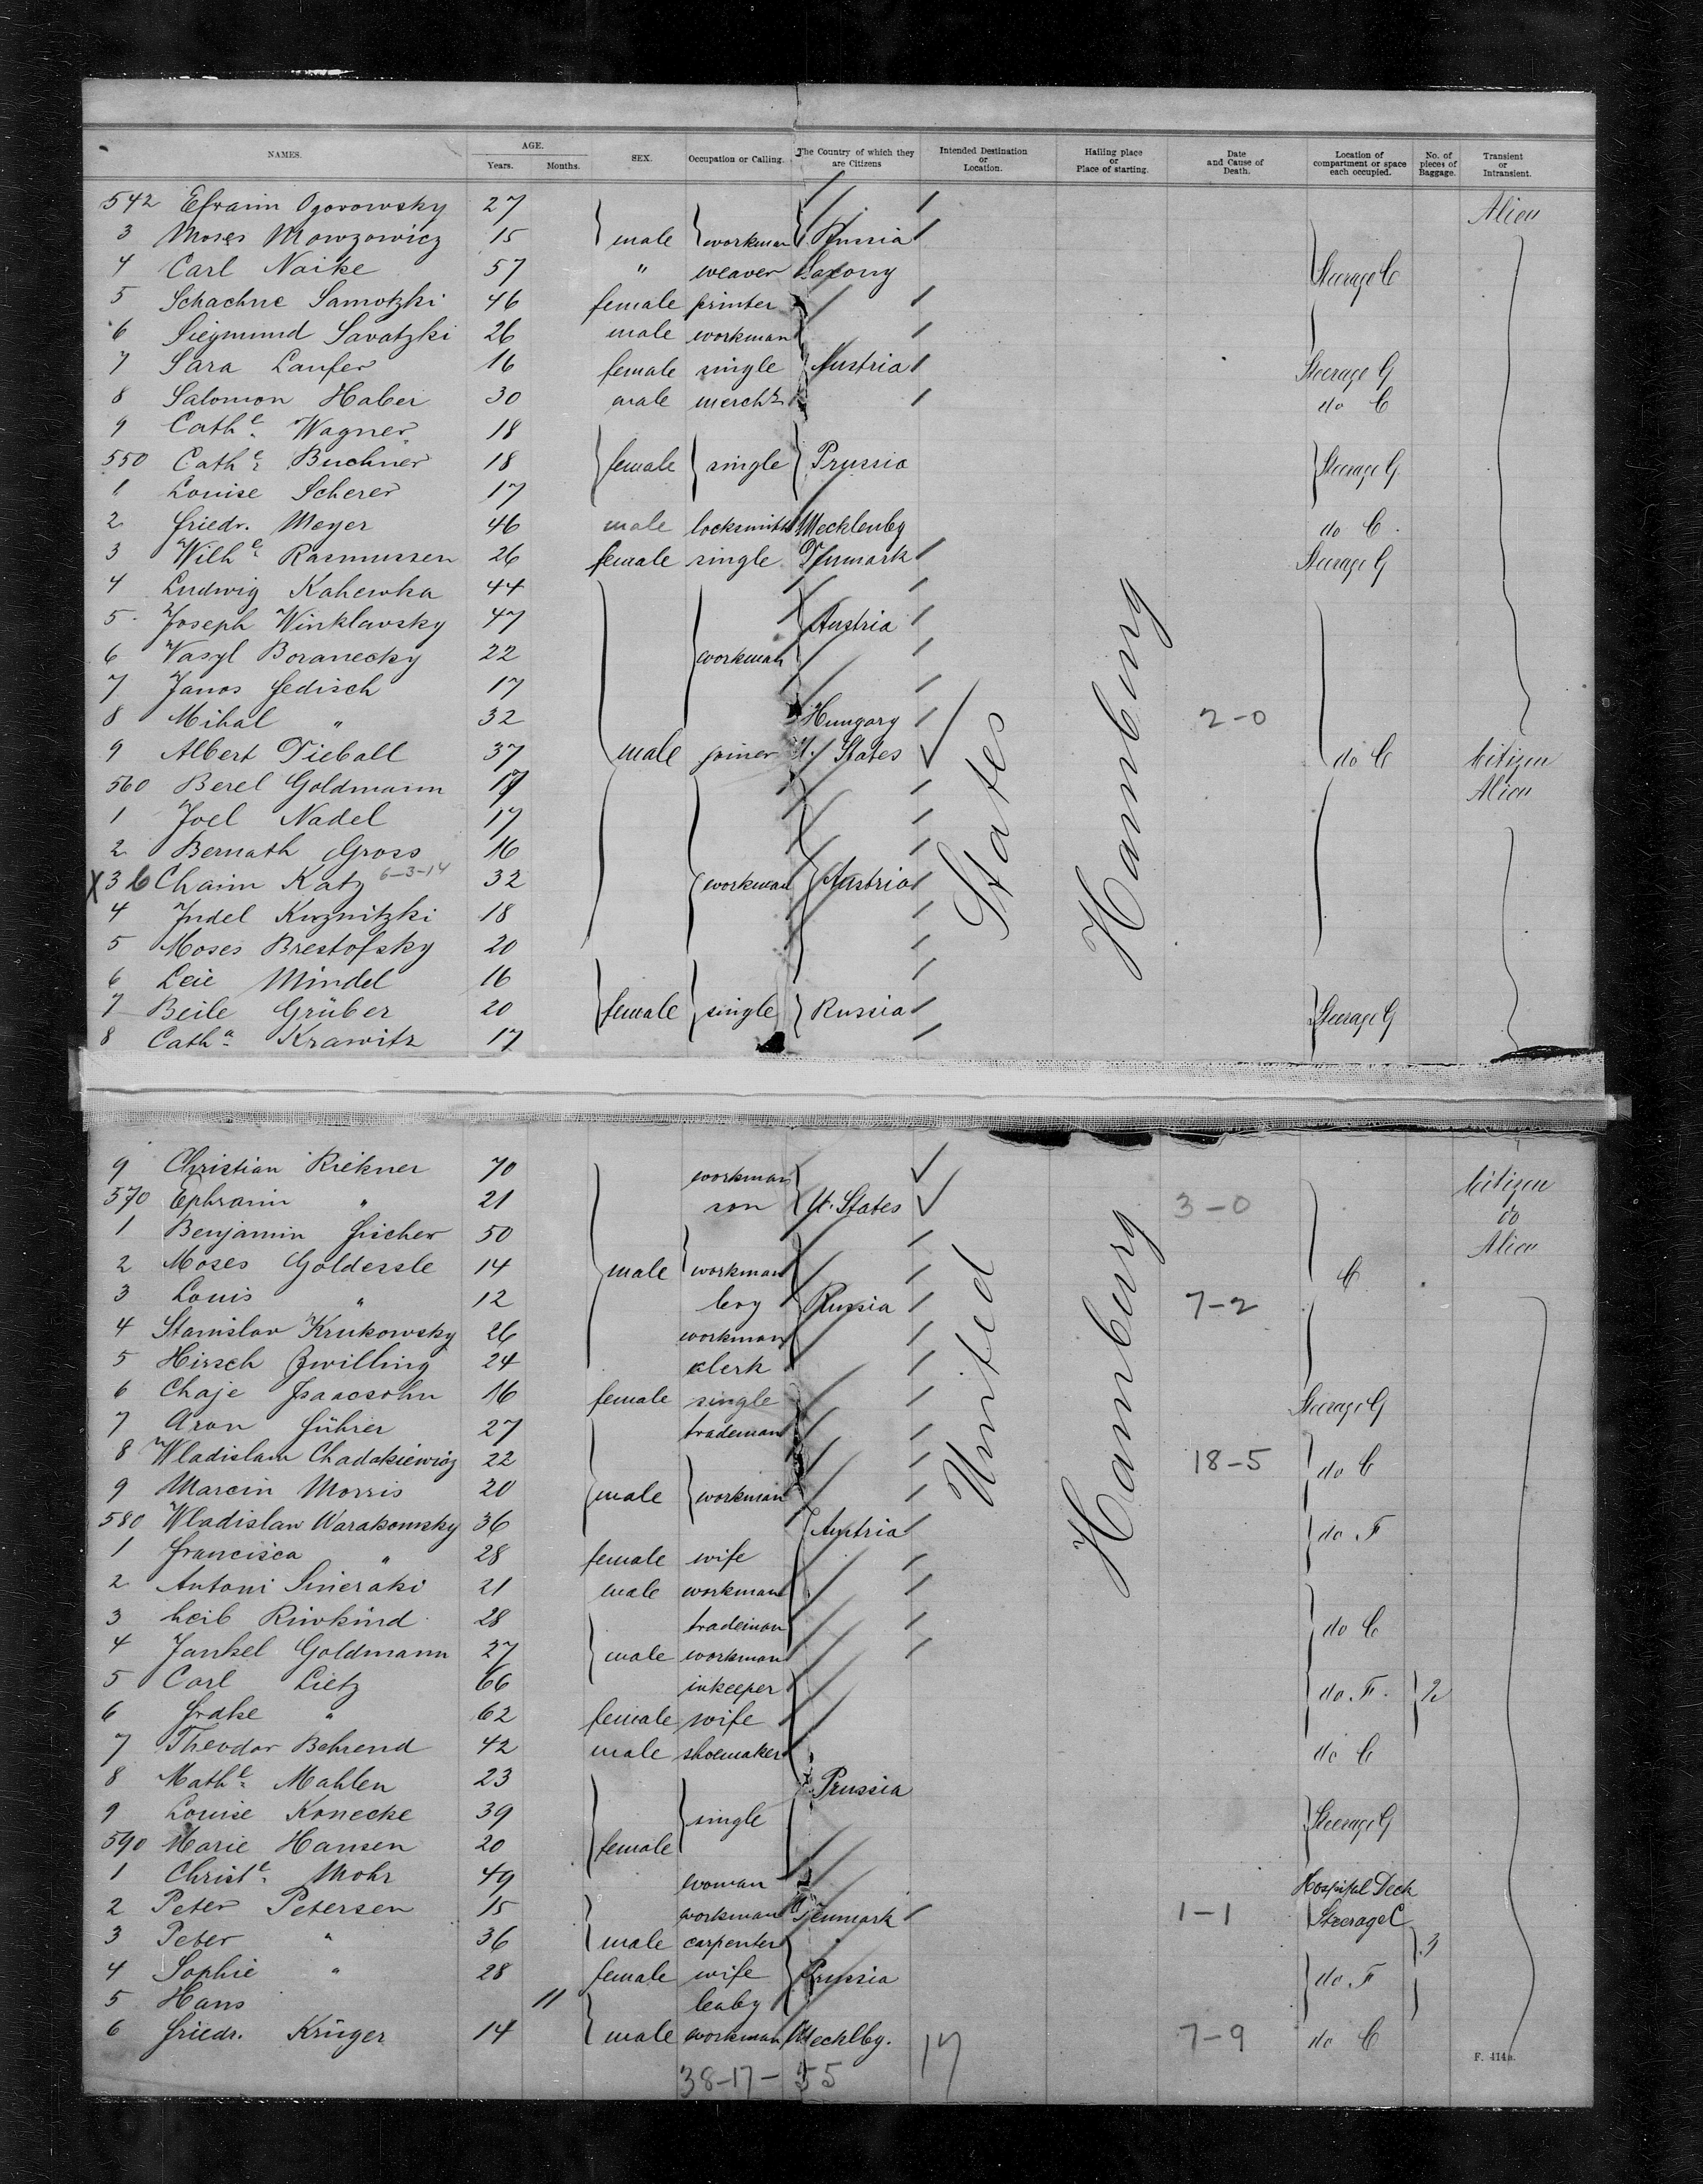 NAMES. AGE. Years. Months. SEX. Occupation or Calling. The Country of which they are Citizens Intended Destination or Location. Hailing place or Place of starting. Date and Cause of Death. Location of compartment or space each occupied. No. of pieces of Baggage. Transient or Intransient.
542 Efraim Ogorowsky 27 Alien
3 Moses Mowzowicz 15 male workman Russia
4 Carl Naike 57 " weaver Saxony Steerage C
5 Schachne Samotzki 46 female printer
6 Siegmund Savatzki 26 male workman
7 Sara Laufer 16 female single Austria Steerage G
8 Salomon Haber 30 male mercht do C
9 Cathe Wagner 18
550 Cathe Buchner 18 female single Prussia Steerage G
1 Louise Scherer 17
2 Friedr. Meyer 46 male locksmith Mecklenbg do C.
3 Wilhe Rasmussen 26 female single Denmark Steerage G
4 Ludwig Kahewka 44
5 Joseph Winklawsky 47 Austria
6 Vasyl Boranecky 22 workman
7 Janos Fedisch 17
8 Mihal " 32 Hungary 2-0
9 Albert Dieball 37 male joiner U. States do C Citizen
560 Berel Goldmann 17 Alien
1 Joel Nadel 17
2 Bernath Gross 16
X 3 6 Chaim Katz 6-3-14 32 workman Austria
4 Judel Kuznitzki 18
5 Moses Brestofsky 20
6 Leie Mindel 16
7 Beile Grüber 20 female single Russia Steerage G
8 Catha Krawitz 17
9 Christian Riekner 70 workman Citizen
570 Ephraim " 21 son U. States 3-0 do
1 Benjamin Fischer 50 Alien
2 Moses Goldessle 14 male workman C
3 Louis " 12 boy Russia 7-2
4 Stanislav Krukowsky 26 workman
5 Hirsch Zwilling 24 clerk
6 Chaje Isaacsohn 16 female single Steerage G
7 Aron Führer 27 trademan
8 Wladislaw Chadakiewicz 22 18-5 do C
9 Marcin Morris 20 male workman
580 Wladislaw Warakomsky 36 Austria do F
1 Francisca " 28 female wife
2 Antoni Sinieraki 21 male workman
3 Leib Riwkind 28 trademan do C
4 Jankel Goldmann 27 male workman
5 Carl Lietz 66 inkeeper do F. 2
6 Frdke " 62 female wife
7 Theodor Behrend 42 male shoemaker do C
8 Mathe Mahlen 23 Prussia
9 Louise Konecke 39 single Steerage G
590 Marie Hansen 20 female
1 Christe Mohr 49 woman Hospital Deck
2 Peter Petersen 15 workman Denmark 1-1 Steerage C
3 Peter " 36 male carpenter 3
4 Sophie " 28 female wife Prussia do F
5 Hans 11 baby
6 Friedr. Krüger 14 male workman Mecklbg. 7-9 do C
38-17-55 17
United States
Hamburg
Hamburg
F. 414a.